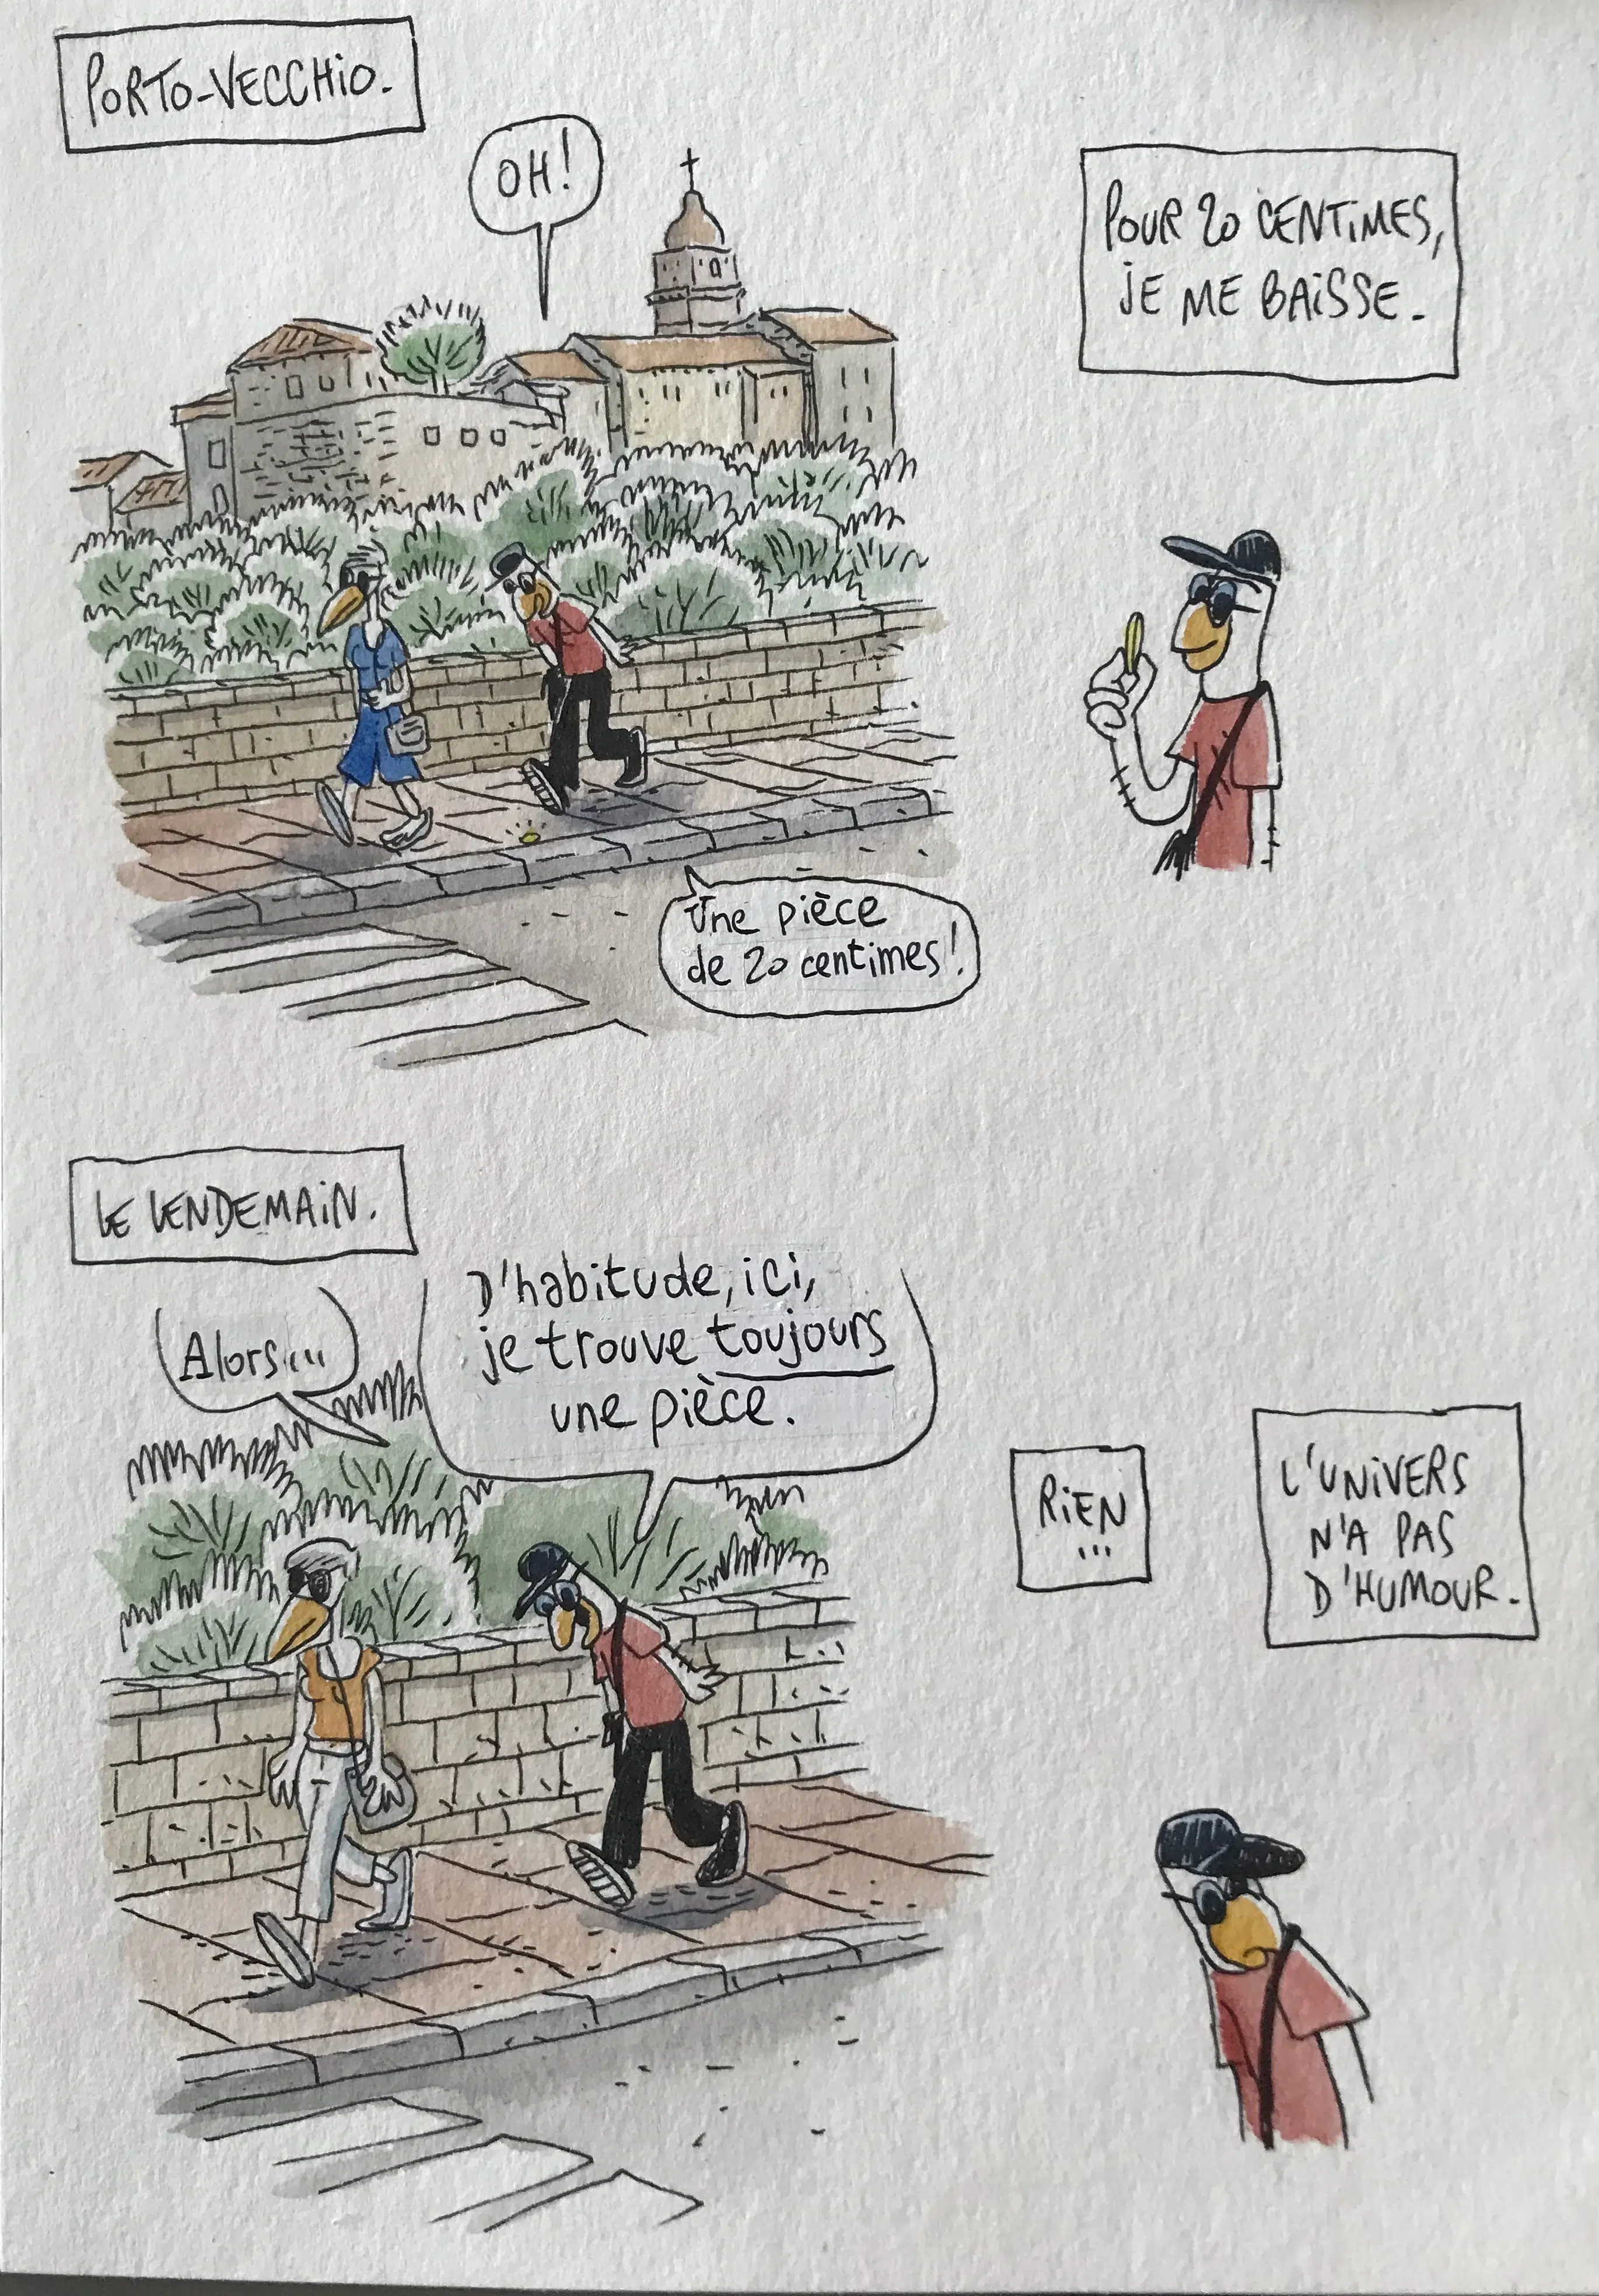 PORTO-VECCHIO.
OH!
Une pièce
de 20 centimes!
POUR 20 CENTIMES,
JE ME BAISSE.
LE LENDEMAIN.
Alors...
D'habitude, ici,
je trouve toujours
une pièce.
RIEN
...
L'UNIVERS
N'A PAS
D'HUMOUR.